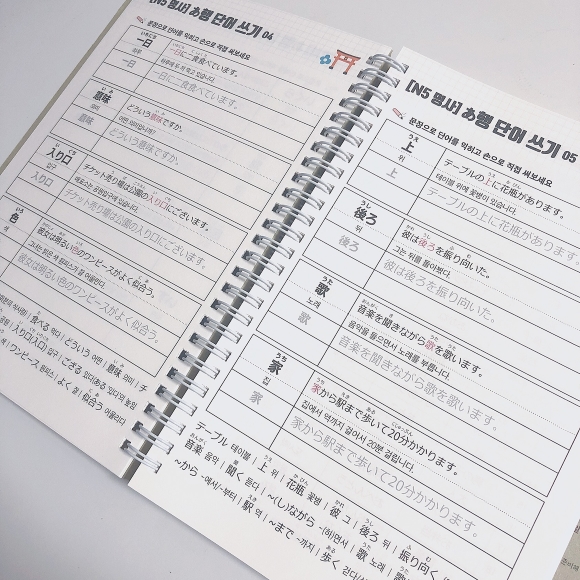 [N5 명사] あ행 단어 쓰기 04
문장으로 단어를 익히고 손으로 직접 써보세요
いちにち
一日
하루
一日
一日に二食食べています。
하루에 두 끼 먹고 있습니다.
一日に二食食べています。
いみ
意味
의미
意味
どういう意味ですか。
어떤 의미입니까?
どういう意味ですか。
いりぐち
入り口
입구
入り口
チケット売り場は公園の入り口にございます。
매표소는 공원 입구에 있습니다.
チケット売り場は公園の入り口にございます。
いろ
色
색
色
彼女は明るい色のワンピースがよく似合う。
그녀는 밝은 색 원피스가 잘 어울린다.
彼女は明るい色のワンピースがよく似合う。
食べる 먹다 | どういう 어떤 | 意味 의미 | チ
入り口(入口) 입구 | ござる 있다(ある 있다)의 높임
ワンピース 원피스 | よく 잘 | 似合う 어울리다
[N5 명사] あ행 단어 쓰기 05
문장으로 단어를 익히고 손으로 직접 써보세요
うえ
上
위
上
テーブルの上に花瓶があります。
테이블 위에 꽃병이 있습니다.
テーブルの上に花瓶があります。
うしろ
後ろ
뒤
後ろ
彼は後ろを振り向いた。
그는 뒤를 돌아봤다.
彼は後ろを振り向いた。
うた
歌
노래
歌
音楽を聞きながら歌を歌います。
음악을 들으면서 노래를 부릅니다.
音楽を聞きながら歌を歌います。
うち
家
집
家
家から駅まで歩いて20分かかります。
집에서 역까지 걸어서 20분 걸립니다.
家から駅まで歩いて20分かかります。
テーブル 테이블 | 上 위 | 花瓶 꽃병 | 彼 그 | 後ろ 뒤 | 振り向く
音楽 음악 | 聞く 듣다 | ~(し)ながら ~(하)면서 | 歌 노래 | 歌
~から ~에서/~부터 | 駅 역 | ~まで ~까지 | 歩く 걷다